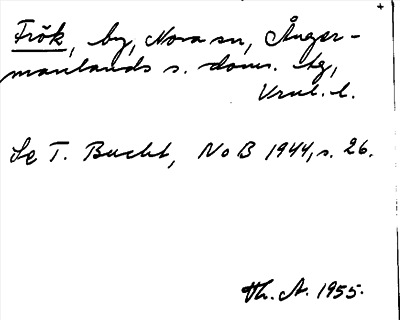 Frök, by, Nora sn, Ånger-
manlands s. doms. tg,
Vrnl. l.
Se T. Bucht, NoB 1944, s. 26.
Th. A. 1955.